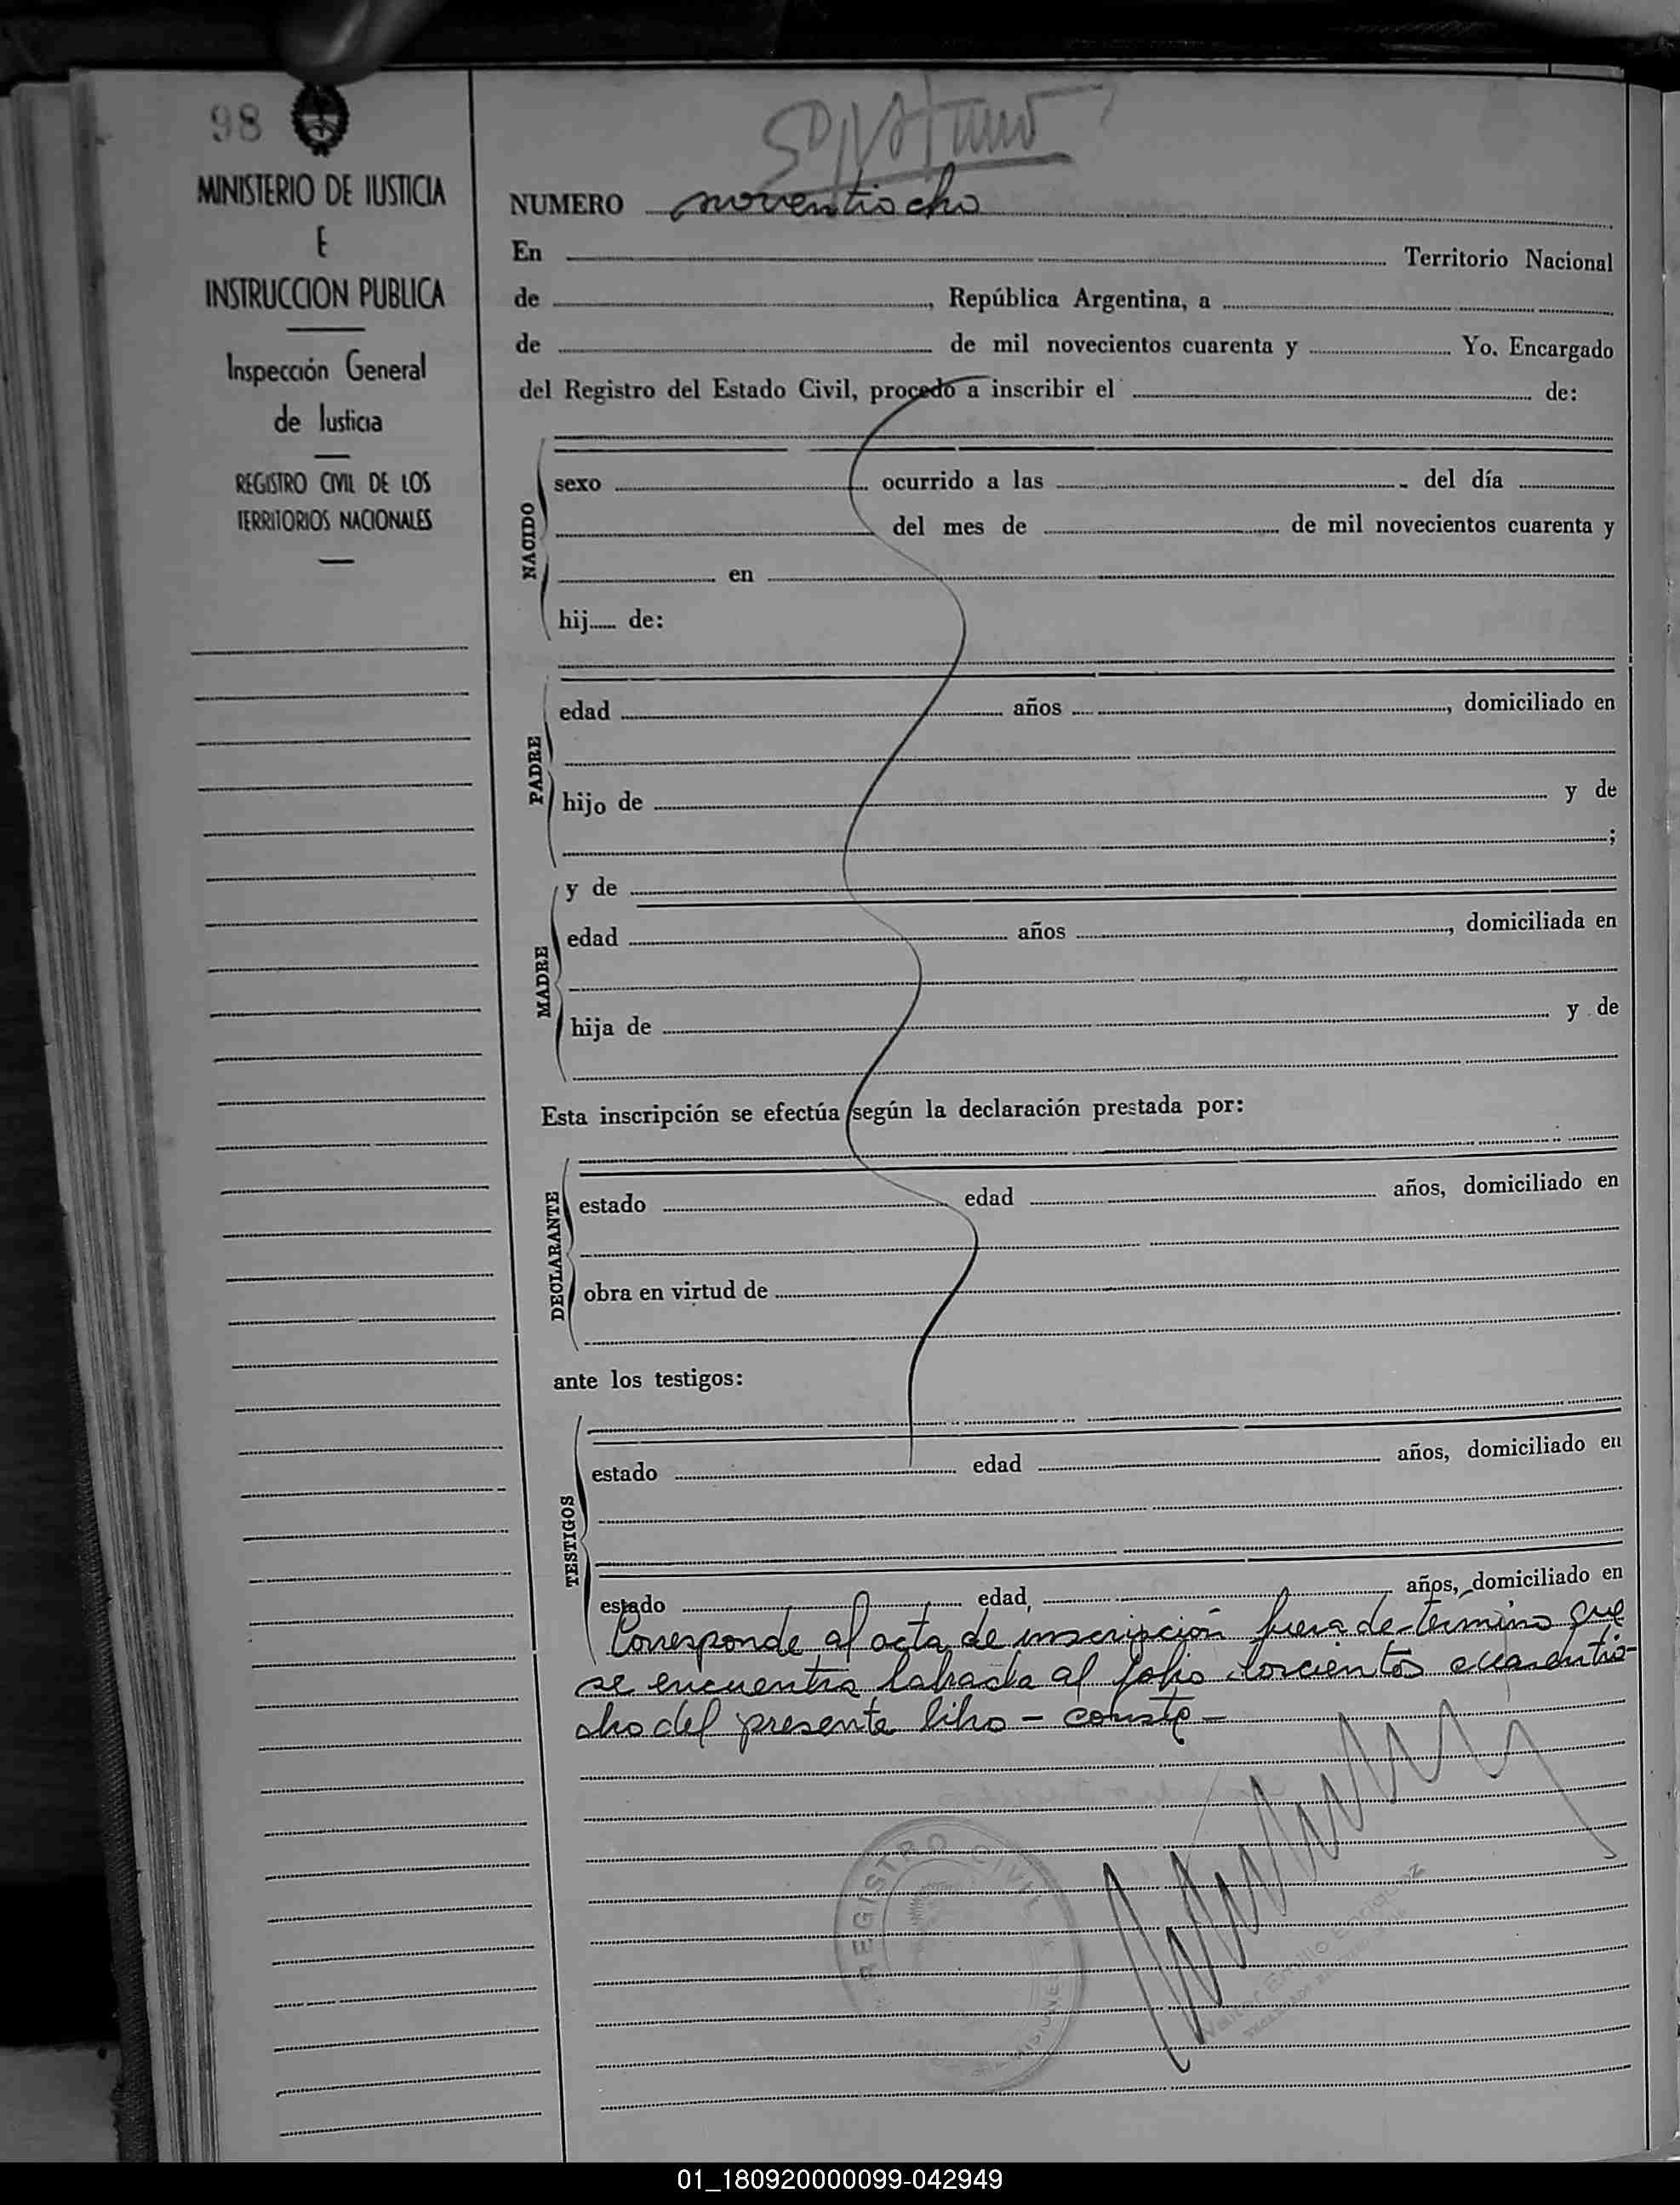 98
MINISTERIO DE JUSTICIA
E
INSTRUCCION PUBLICA
Inspección General
de Justicia
REGISTRO CIVIL DE LOS
TERRITORIOS NACIONALES
NUMERO noventiocho
En Territorio Nacional
de , República Argentina, a
de de mil novecientos cuarenta y Yo. Encargado
del Registro del Estado Civil, procedo a inscribir el de:
NACIDO
sexo ocurrido a las del día
del mes de de mil novecientos cuarenta y
en
hij de:
PADRE
edad años , domiciliado en
hijo de y de
;
MADRE
y de
edad años , domiciliada en
hija de y de
Esta inscripción se efectúa según la declaración prestada por:
DECLARANTE
estado edad años, domiciliado en
obra en virtud de
ante los testigos:
TESTIGOS
estado edad años, domiciliado en
estado edad, años, domiciliado en
Corresponde al acta de inscripción fuera de termino que
se encuentra labrada al folio doscientos cuarentio-
cho del presente libro - conste -
REGISTRO CIVIL
MISIONES
Walter Emilio Enriquez
01_180920000099-042949